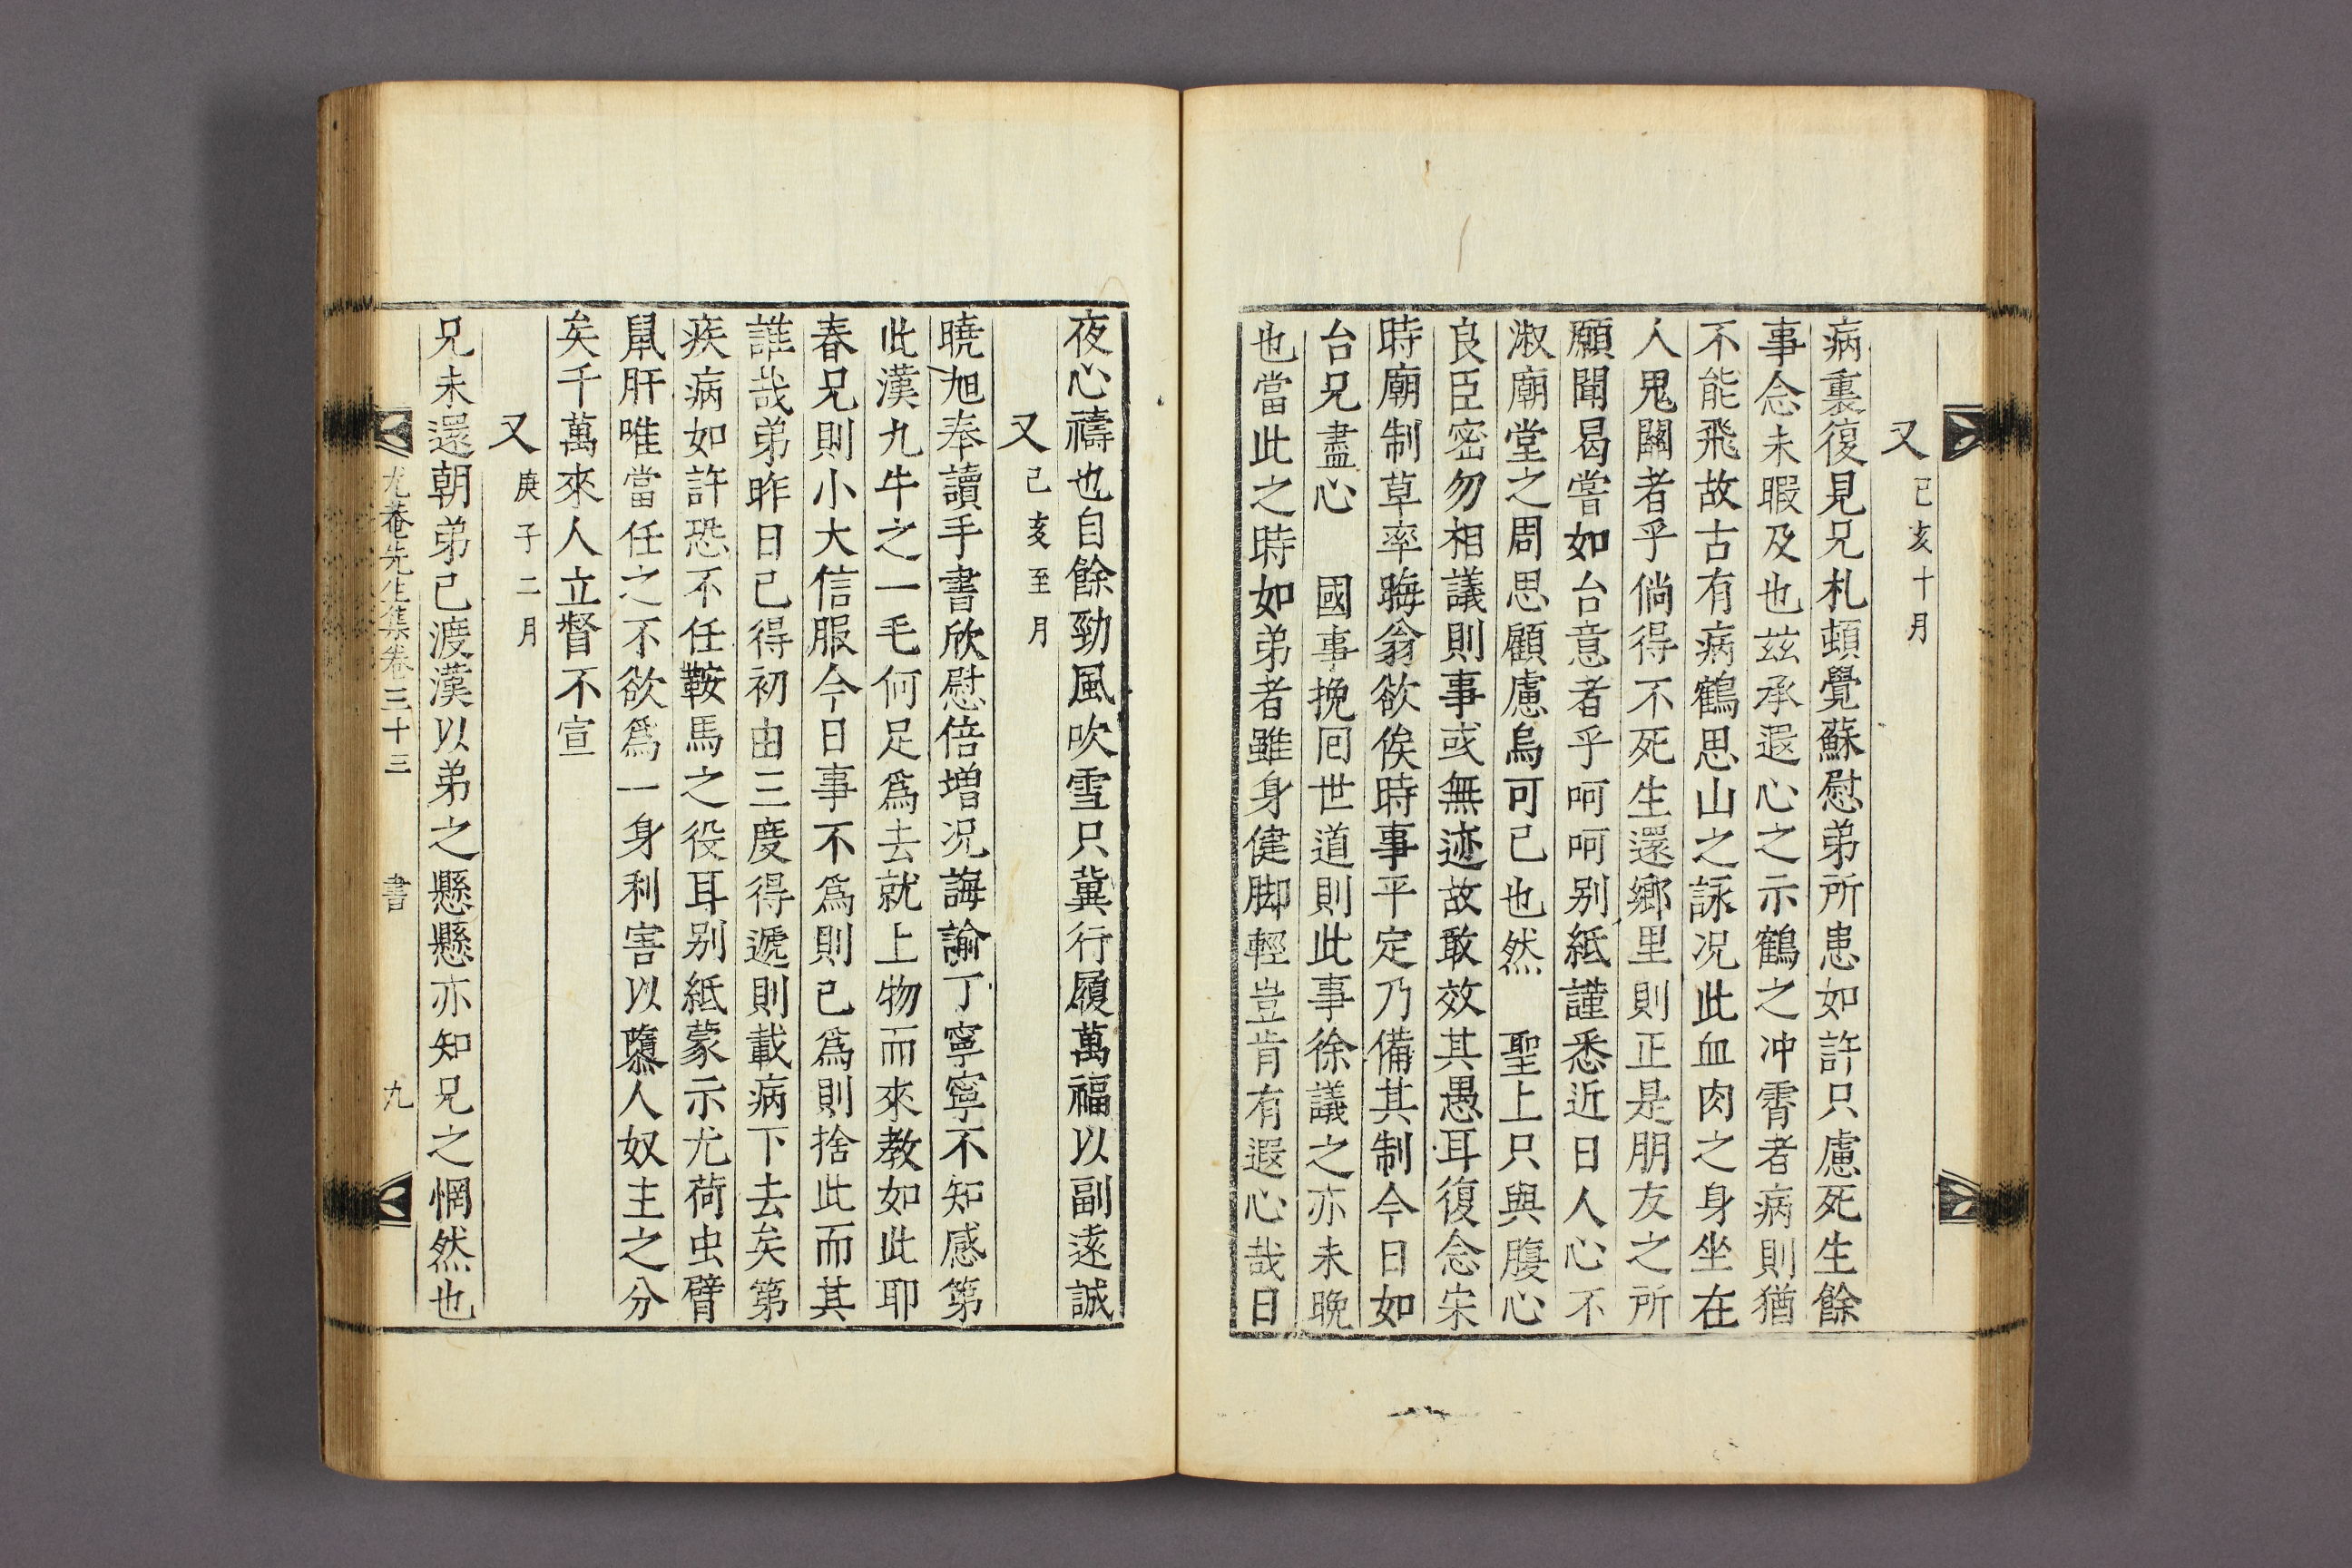 又 己亥十月
病裏復見兄札頓覺蘇慰弟所患如許只慮死生餘
事念未暇及也玆承遐心之示鶴之冲霄者病則猶
不能飛故古有病鶴思山之詠况此血肉之身坐在
人鬼關者乎倘得不死生還鄉里則正是朋友之所
願聞曷嘗如台意者乎呵呵别紙謹悉近日人心不
淑廟堂之周思顧慮烏可已也然 聖上只與腹心
良臣密勿相議則事或無迹故敢效其愚耳復念宋
時廟制草率晦翁欲俟時事平定乃備其制今日如
台兄盡心 國事挽囘世道則此事徐議之亦未晩
也當此之時如弟者雖身健脚輕豈肯有遐心哉日
夜心禱也自餘勁風吹雪只冀行履萬福以副遠誠
又 己亥至月
曉旭奉讀手書欣慰倍增况誨諭丁寧寧不知感第
此漢九牛之一毛何足爲去就上物而來教如此耶
春兄則小大信服今日事不爲則已爲則捨此而其
誰哉弟昨日已得初由三度得遞則載病下去矣第
疾病如許恐不任鞍馬之役耳别紙蒙示尤荷虫臂
鼠肝唯當任之不欲爲一身利害以隳人奴主之分
矣千萬來人立督不宣
又 庚子二月
兄未還朝弟已渡漢以弟之懸懸亦知兄之惘然也
尤菴先生集卷三十三 書 九